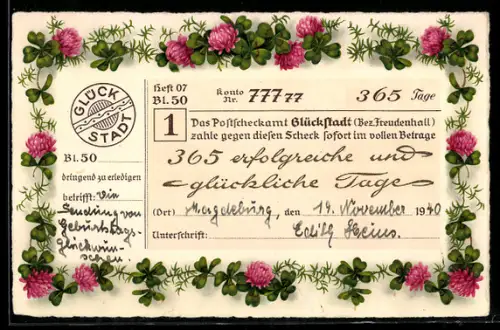 GLÜCK
STADT
Bl. 50
dringend zu erledigen
betrifft: Die
Sendung von
Geburtstags-
glückwün-
schen.
Heft 07
Bl. 50
Konto
Nr. 77777
365 Tage
1
Das Postscheckamt Glückstadt (Bez. Freudenhall)
zahle gegen diesen Scheck sofort im vollen Betrage
365 erfolgreiche und
glückliche Tage
(Ort) Magdeburg, den 19. November 1940
Unterschrift: Edith